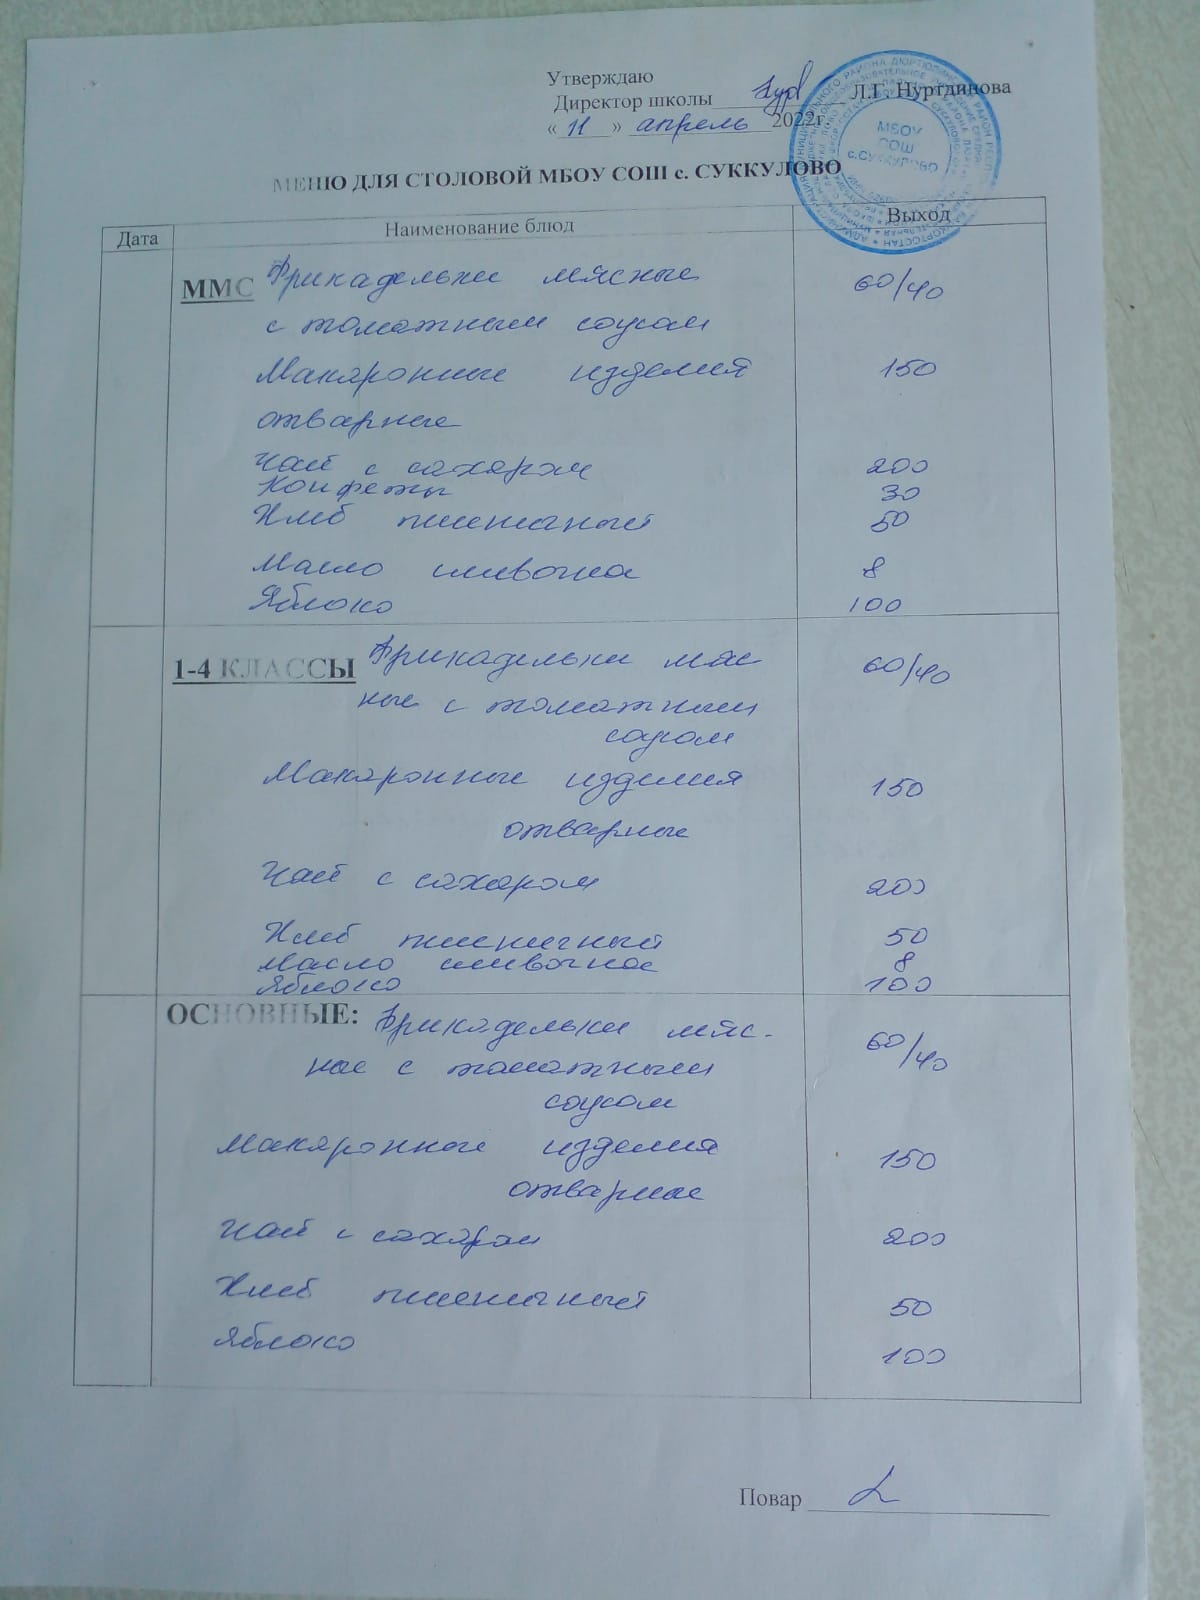 Утверждаю
Директор школы Л.Г. Нуртдинова
« 11 » апрель 2022г.
МБОУ
СОШ
с.СУККУЛОВО
МЕНЮ ДЛЯ СТОЛОВОЙ МБОУ СОШ с. СУККУЛОВО
Дата Наименование блюд Выход
ММС Фрикадельки мясные 60/40
с томатным соусом
Макаронные изделия 150
отварные
Чай с сахаром 200
Конфеты 30
Хлеб пшеничный 50
Масло сливочное 8
Яблоко 100
1-4 КЛАССЫ Фрикадельки мяс 60/40
ные с томатным
соусом
Макаронные изделия 150
отварные
Чай с сахаром 200
Хлеб пшеничный 50
Масло сливочное 8
Яблоко 100
ОСНОВНЫЕ: Фрикадельки мяс- 60/40
ные с томатным
соусом
Макаронные изделия 150
отварные
Чай с сахаром 200
Хлеб пшеничный 50
Яблоко 100
Повар